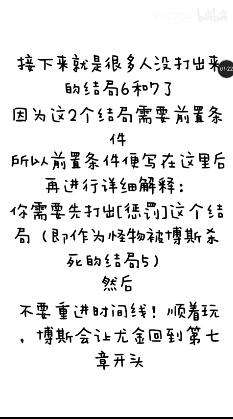 接下来就是很多人没打出来
的结局6和7了
因为这2个结局需要前置条
件
所以前置条件便写在这里后
再进行详细解释：
你需要先打出[惩罚]这个结
局（即作为怪物被博斯杀
死的结局5）
然后
不要重进时间线！顺着玩
，博斯会让尤金回到第七
章开头